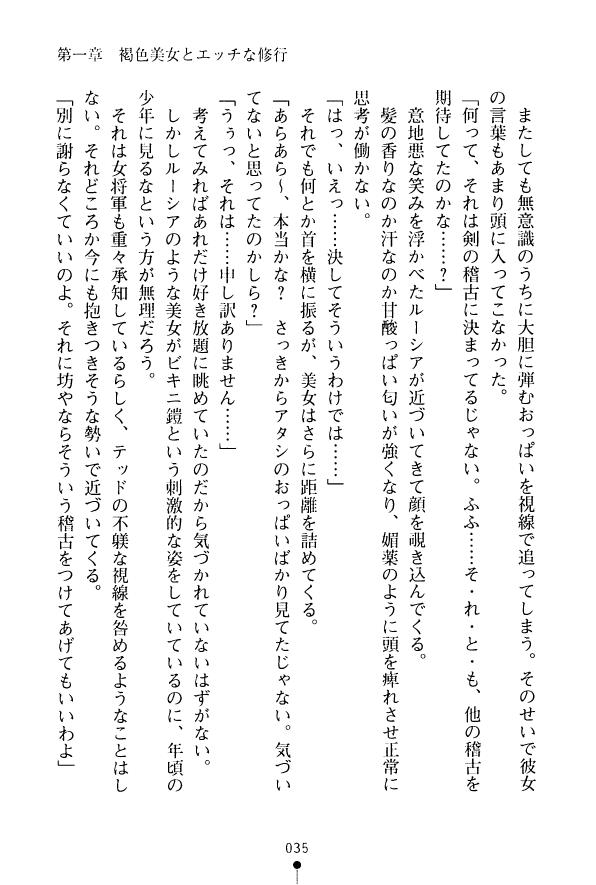 第一章　褐色美女とエッチな修行
　またしても無意識のうちに大胆に弾むおっぱいを視線で追ってしまう。そのせいで彼女
の言葉もあまり頭に入ってこなかった。
「何って、それは剣の稽古に決まってるじゃない。ふふ……そ・れ・と・も、他の稽古を
期待してたのかな……？」
　意地悪な笑みを浮かべたルーシアが近づいてきて顔を覗き込んでくる。
　髪の香りなのか汗なのか甘酸っぱい匂いが強くなり、媚薬のように頭を痺れさせ正常に
思考が働かない。
「はっ、いえっ……決してそういうわけでは……」
　それでも何とか首を横に振るが、美女はさらに距離を詰めてくる。
「あらあら～、本当かな？　さっきからアタシのおっぱいばかり見てたじゃない。気づい
てないと思ってたのかしら？」
「うぅっ、それは……申し訳ありません……」
　考えてみればあれだけ好き放題に眺めていたのだから気づかれていないはずがない。
　しかしルーシアのような美女がビキニ鎧という刺激的な姿をしていているのに、年頃の
少年に見るなという方が無理だろう。
　それは女将軍も重々承知しているらしく、テッドの不躾な視線を咎めるようなことはし
ない。それどころか今にも抱きつきそうな勢いで近づいてくる。
「別に謝らなくていいのよ。それに坊やならそういう稽古をつけてあげてもいいわよ」
035